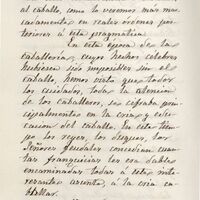 al caballo, como lo veremos mas mar-
cadamente en reales órdenes pos-
teriores á esta pragmática.
En esta época de los
caballeros, cuyos hechos celebres
hubieran sido imposibles sin el
caballo, hemos visto que todos
los cuidados, toda la atencion
de los caballeros, se cifraba prin-
cipalmente en la cria y edu-
cacion del caballo. En este tiem-
po los reyes, los duques, los
Señores feudales concedian cuan-
tas franquicias les era dables
encaminadas todas á este inte-
resante asunto, á la cria ca-
ballar.